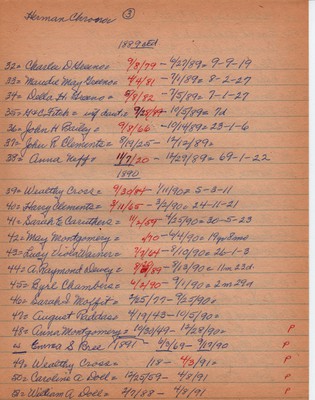 Herman Chroover ③
1889 ctd
32 = Charles D. Greeno = 9/8/79 - 4/27/89 = 9-9-19
33 = Maudie May Greeno = 4/4/81 - 7/1/89 = 8-2-27
34 = Della H. Greeno = 5/8/82 - 7/5/89 = 7-1-27
35 = H & C. Fitch = inf. daut. = 9/28/89 - 10/5/89 = 7d
36 = John H. Bailey = 9/8/66 - 10/14/89 = 23-1-6
37 = John R. Clements = 8/19/25 - 12/12/89 =
38 = Anna Neff = 11/7/20 - 12/29/89 = 69-1-22
1890
39 = Wealthy Cross = 9/30/84 - 1/11/90 = 5-3-11
40 = Harry Clements = 3/11/65 - 2/2/90 = 24-11-21
41 = Sarah E Caruthers = 11/2/59 - 4/25/90 = 30-5-23
42 = May Montgomery = /70 - 4/4/90 = 19yr 8mos
43 = Lucy Viola Warner = 7/7/64 - 8/10/90 = 26-1-3
44 = A. Raymond Dewey = /89 - 9/13/90 = 11m 22d.
45 = Earl Chambers = 6/2/90 - 9/1/90 = 2m 29d
46 = Sarah I Moffit = 2/25/77 - 9/25/90 =
47 = August Raddas = 4/19/43 - 10/5/90 =
48 = Anna Montgomery = 10/30/49 - 12/28/90 = P
Emma S. Bice 1891 4/2/69 - 3/17/90 P
49 = Wealthy Cross = /18 - 4/3/91 = P
50 = Caroline A Doll = 12/25/59 - 4/8/91 P
51 = William A. Doll = 2/7/88 - 4/8/91 P